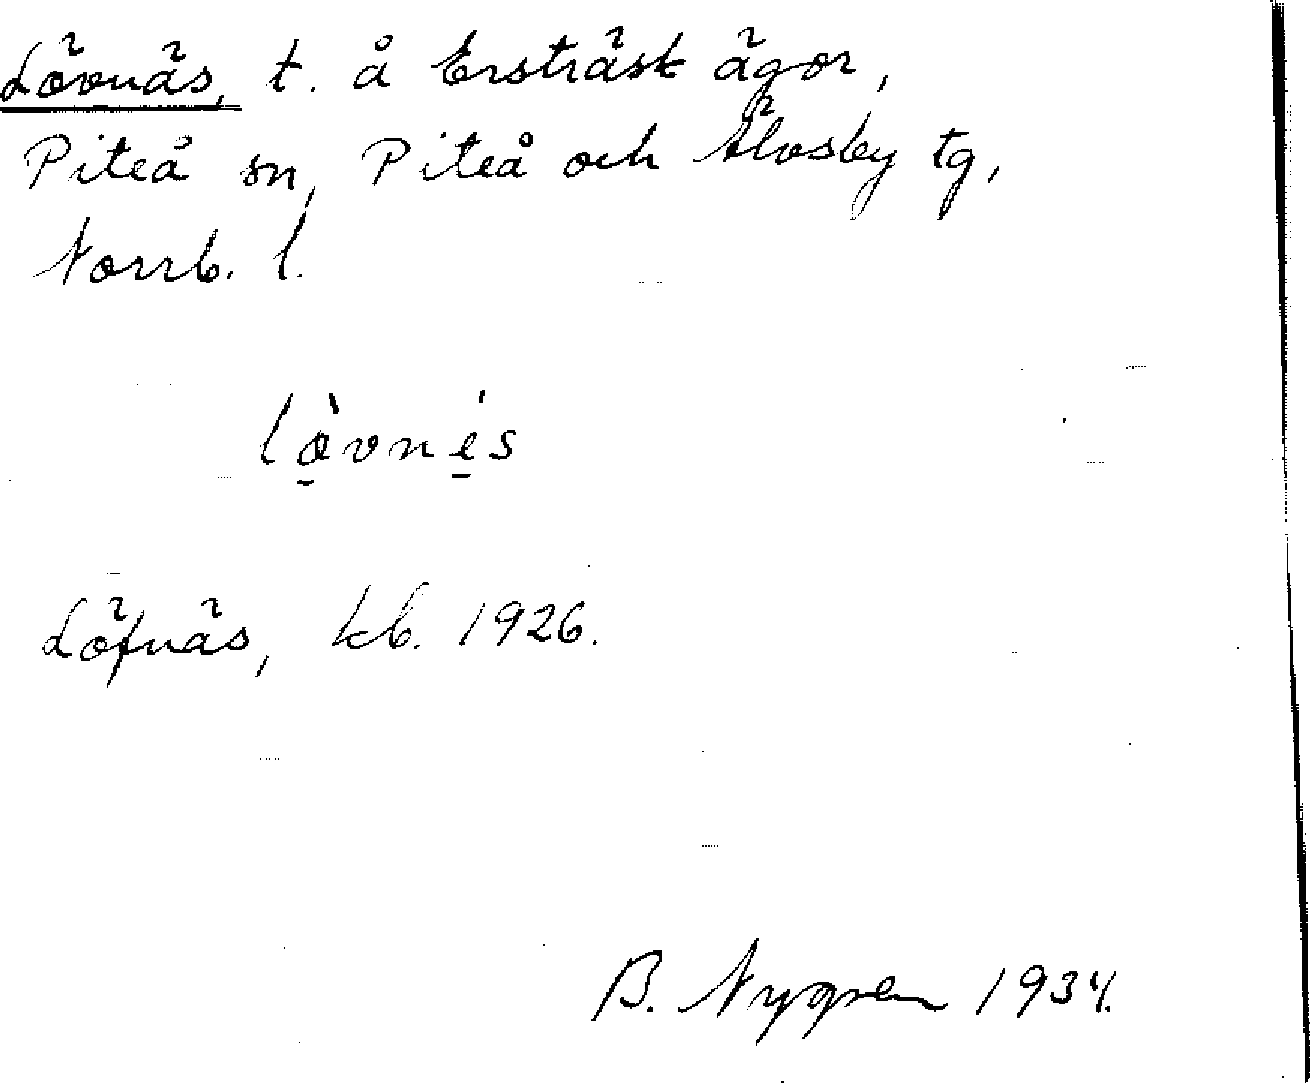 Lövnäs, t. å Ersträsk ägor,
Piteå sn, Piteå och Älvsby tg,
Norrb. l.
lø̠̀vnè̠s
Löfnäs, kb. 1926.
B. Nygren 1934.